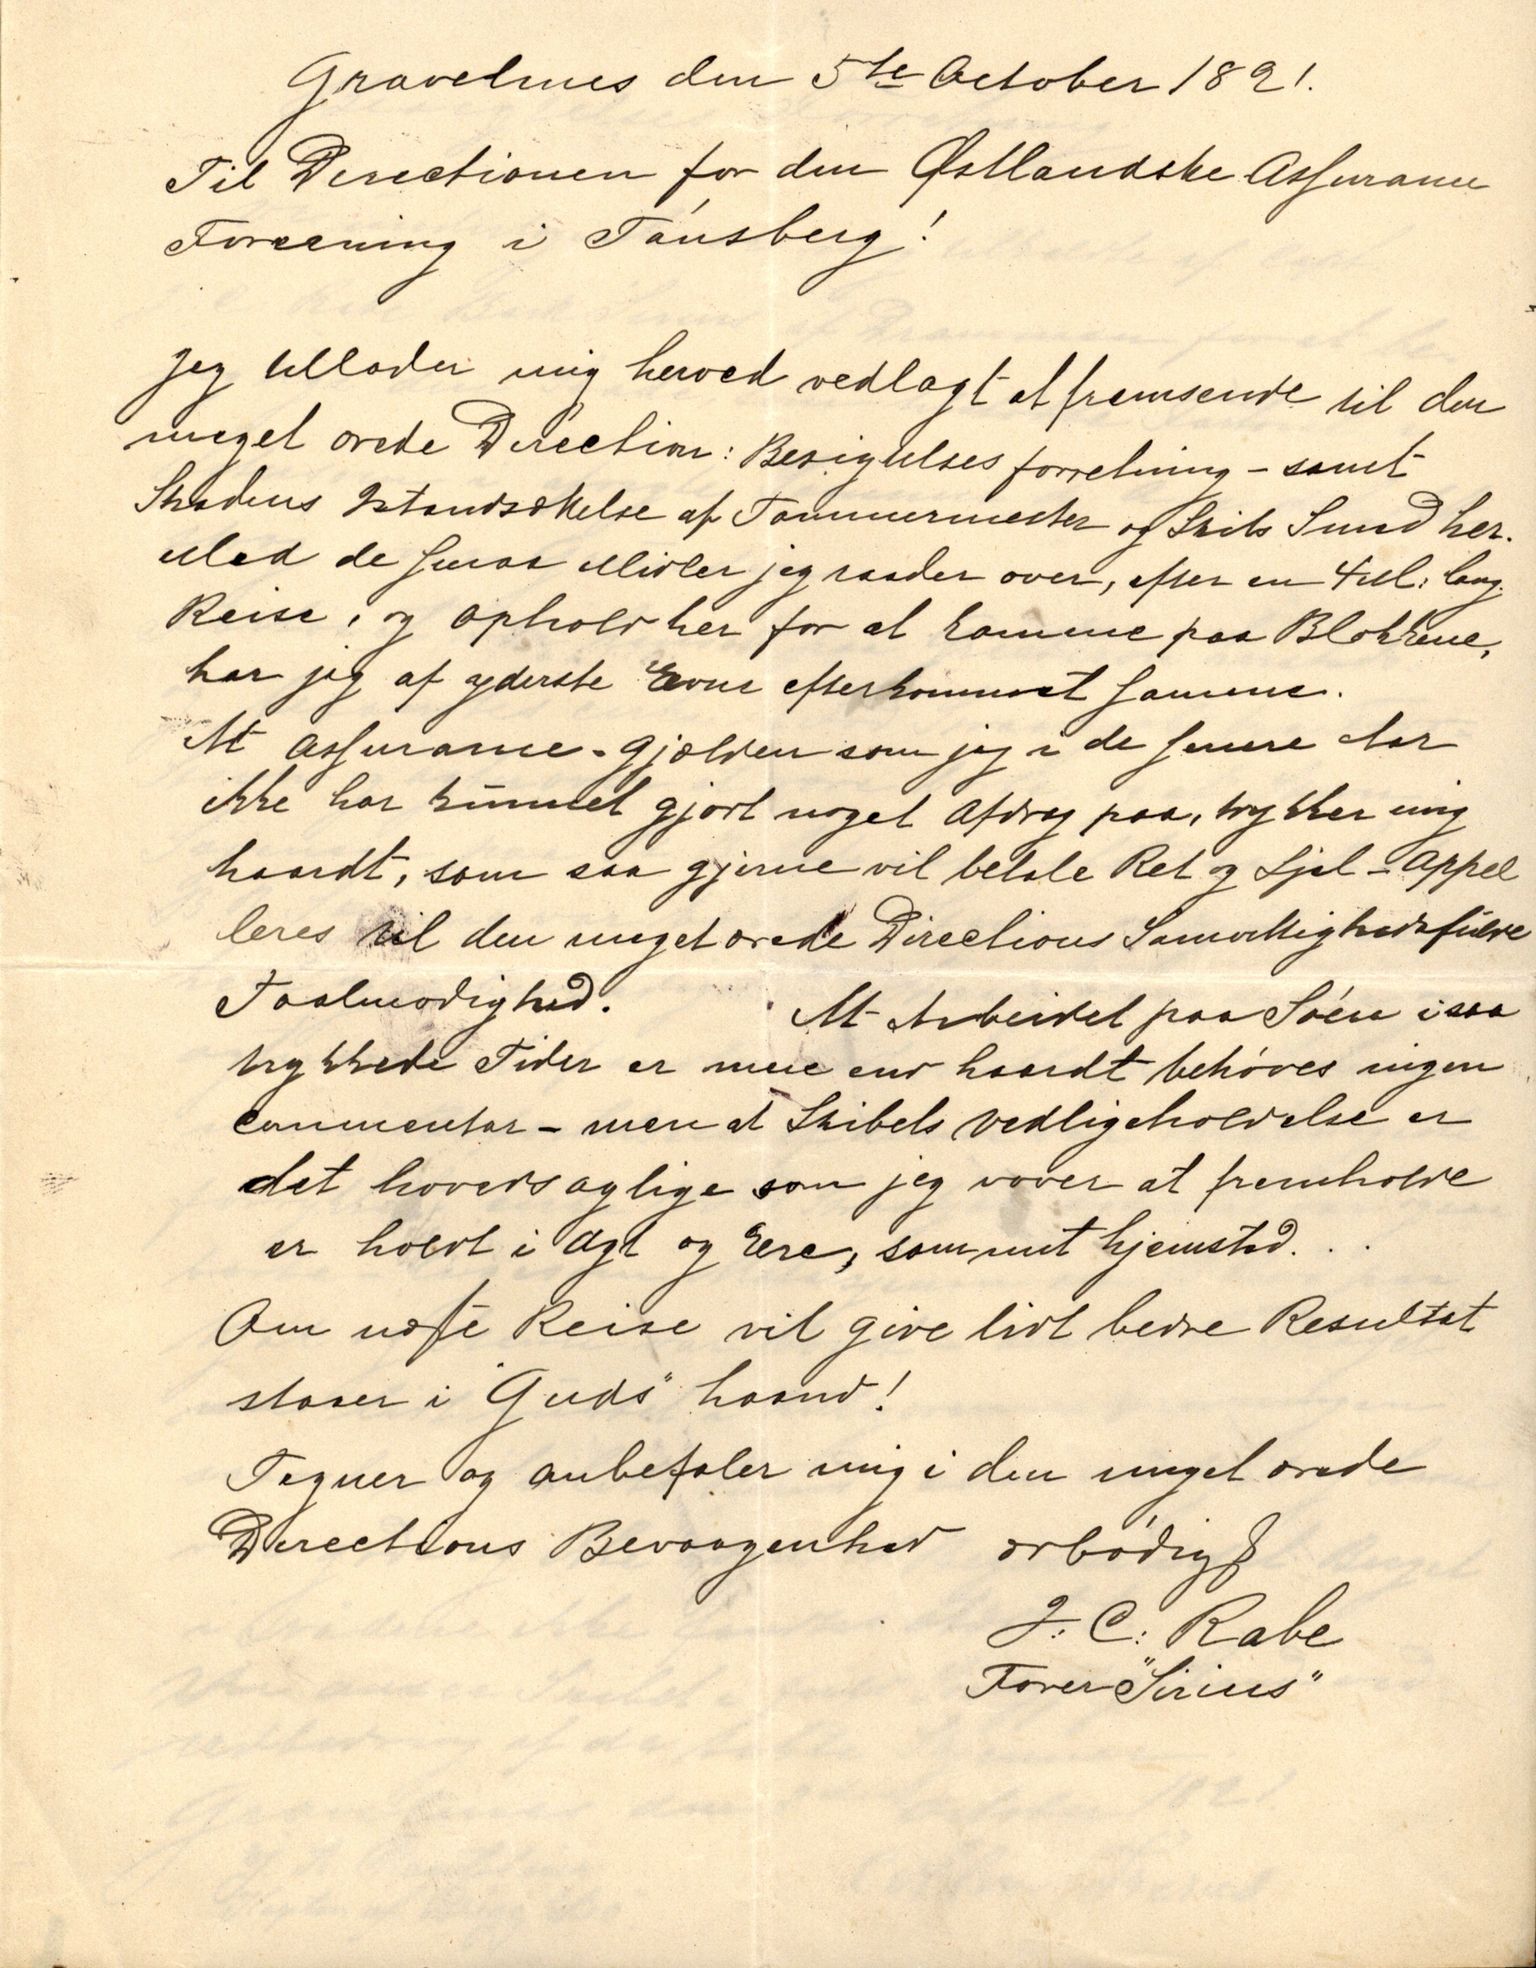 Gravelines den 5te October 1891.
Til Directionen for den Østlandske Assurance
Foreening i Tønsberg!
Jeg tillader mig herved vedlagt at fremsende til den
meget ærede Direction: Besigtelses forretning - samt
Skadens Istandsættelse af Tømmermester og Skibs Smed her.
Med de smaa Midler jeg raader over, efter en 4 M: lang
Reise, og Ophold her for at komme paa Blokkene,
har jeg af yderste Evne efterkommet samme.
At Assurance-Gjælden som jeg i de senere Aar
ikke har kunnet gjort noget Afdrag paa, trykker mig
haardt, som saa gjerne vil betale Ret og Skjel - Appel
leres til den meget ærede Directions Samvittighedsfulde
Taalmodighed. At Arbeidet paa Søen i saa
trykkede Tider er mere end haardt behøves ingen
Commentar - men at Skibets Vedligeholdelse er
det hovedsaglige som jeg vover at fremholde
er holdt i Agt og Ære, som mit hjemsted...
Om næste Reise vil give lidt bedre Resultat
staaer i "Guds" haand!
Tegner og anbefaler mig i den meget ærede
Directions Bevaagenhed ærbødigst
J: C: Rabe
Fører "Sirius"